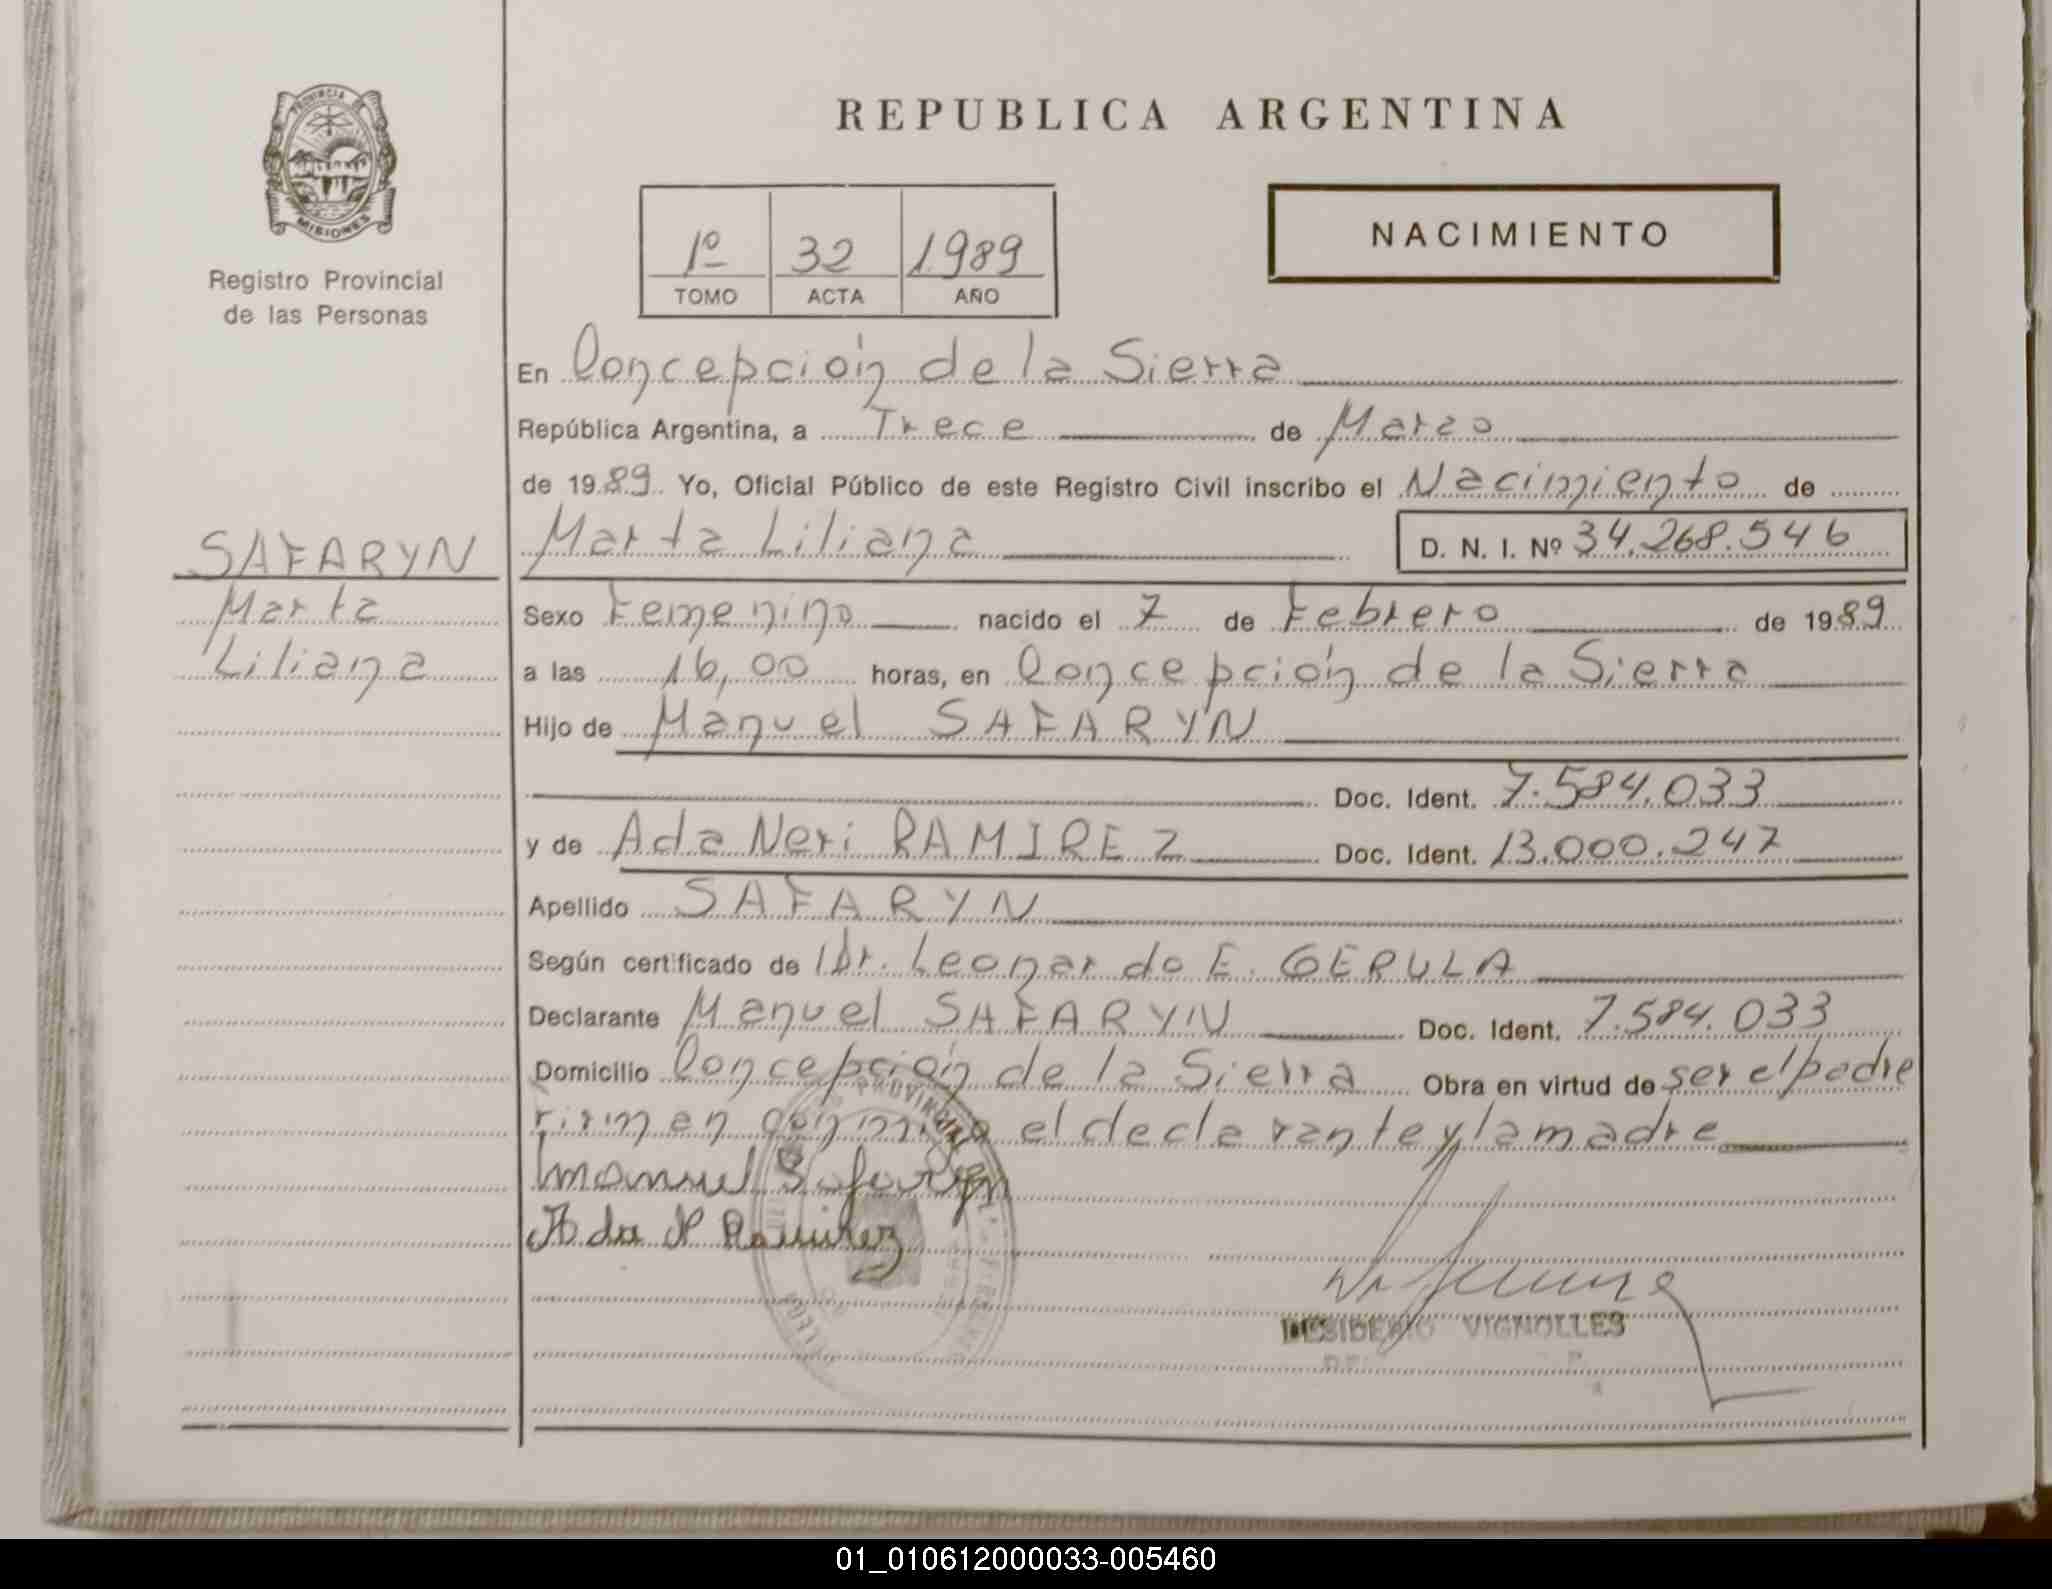 REPUBLICA ARGENTINA
PROVINCIA DE
MISIONES
Registro Provincial
de las Personas
1º 32 1989
TOMO ACTA AÑO
NACIMIENTO
En Concepción de la Sierra
República Argentina, a Trece de Marzo
de 1989 Yo, Oficial Público de este Registro Civil inscribo el Nacimiento de
SAFARYN
Marta
Liliana
Marta Liliana D. N. I. Nº 34.268.546
Sexo Femenino nacido el 7 de Febrero de 1989
a las 16,00 horas, en Concepción de la Sierra
Hijo de Manuel SAFARYN
Doc. Ident. 7.584.033
y de Ada Neri RAMIREZ Doc. Ident. 13.000.247
Apellido SAFARYN
Según certificado de Dr. Leonardo E. GERULA
Declarante Manuel SAFARYN Doc. Ident. 7.584.033
Domicilio Concepción de la Sierra Obra en virtud de ser el padre
firmen conmigo el declarante y la madre
Manuel Safaryn
Ada N Ramirez
DESIDERIO VIGNOLLES
01_010612000033-005460